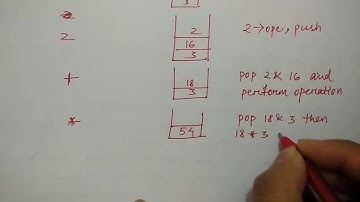 3
2
2
16
3
2→ope, push
+
18
3
pop 2 & 16 and
perform operation
*
54
pop 18 & 3 then
18 * 3